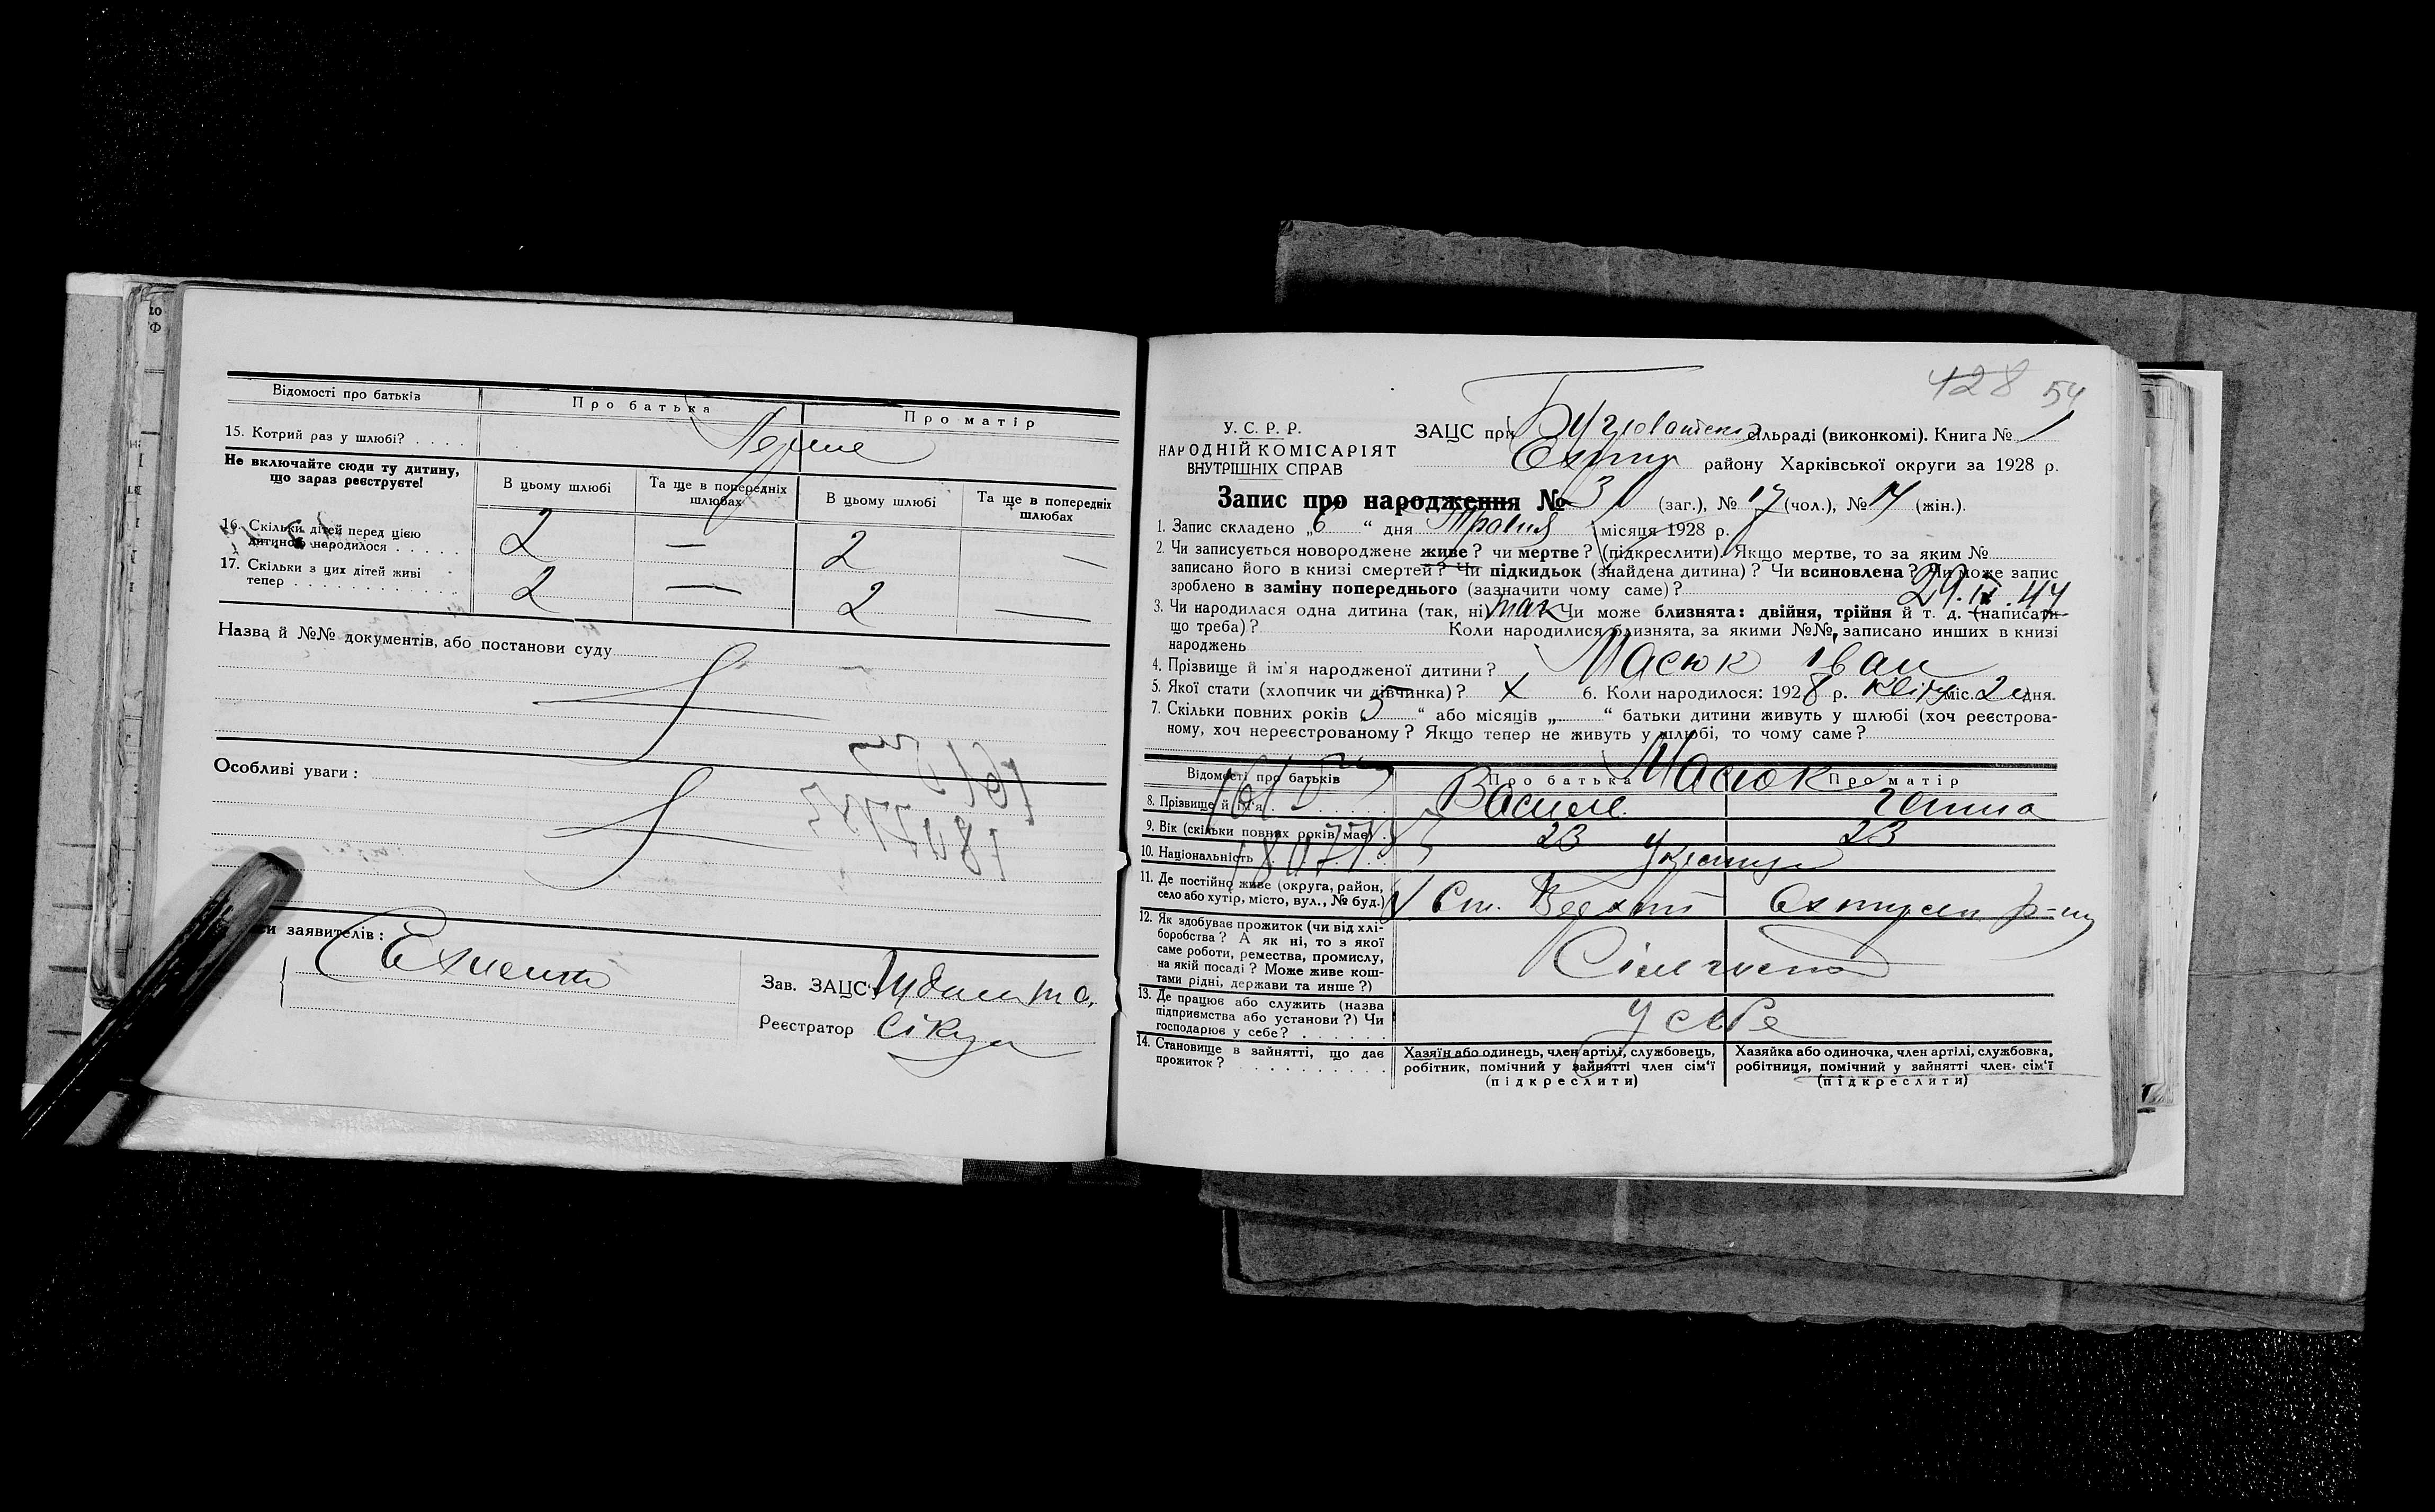 Відомості про батьків
Про батька
Про матір
15. Котрий раз у шлюбі? . . . .
Перше
Не включайте сюди ту дитину,
що зараз реєструєте!
В цьому шлюбі
Та ще в попередніх
шлюбах
В цьому шлюбі
Та ще в попередніх
шлюбах
16. Скільки дітей перед цією
дитиною народилося . . . . .
2 — 2 —
17. Скільки з цих дітей живі
тепер . . . . . . . . . . . .
2 — 2 —
Назва й №№ документів, або постанови суду
Особливі уваги:
заявителів:
Зав. ЗАЦС
Реєстратор
428 54
У. С. Р. Р.
НАРОДНІЙ КОМІСАРІЯТ
ВНУТРІШНІХ СПРАВ
ЗАЦС при сільраді (виконкомі). Книга № 1
району Харківської округи за 1928 р.
Запис про народження № 31 (заг.), № 17 (чол.), № 14 (жін.).
1. Запис складено „6“ дня Травня місяця 1928 р.
2. Чи записується новороджене живе? чи мертве? (підкреслити). Якщо мертве, то за яким №
записано його в книзі смертей? Чи підкидьок (знайдена дитина)? Чи всиновлена? Чи може запис
зроблено в заміну попереднього (зазначити чому саме)?
3. Чи народилася одна дитина (так, ні) так Чи може близнята: двійня, трійня й т. д. (написати
що треба)? Коли народилися близнята, за якими №№ записано инших в книзі
народжень
4. Прізвище й ім'я народженої дитини? Масюк Іван
5. Якої стати (хлопчик чи дівчинка)? х 6. Коли народилося: 1928 р. міс. дня.
7. Скільки повних років „5“ або місяців „ “ батьки дитини живуть у шлюбі (хоч реєстрова-
ному, хоч нереєстрованому? Якщо тепер не живуть у шлюбі, то чому саме?
Відомості про батьків
Про батька
Масюк
Про матір
8. Прізвище й ім'я . . . . . . . .
Василь
Ганна
9. Вік (скільки повних років має)
23
23
10. Національність . . . . . . .
11. Де постійно живе (округа, район,
село або хутір, місто, вул., № буд.)
12. Як здобуває прожиток (чи від хлі-
боробства? А як ні, то з якої
саме роботи, ремества, промислу,
на якій посаді? Може живе кош-
тами рідні, держави та инше?)
13. Де працює або служить (назва
підприємства або установи?) Чи
господарює у себе? . . . . . .
у себе
14. Становище в зайнятті, що дає
прожиток? . . . . . . . . . . .
Хазяїн або одинець, член артілі, службовець,
робітник, помічний у зайнятті член сім'ї
(підкреслити)
Хазяйка або одиночка, член артілі, службовка,
робітниця, помічний у зайнятті член сім'ї
(підкреслити)